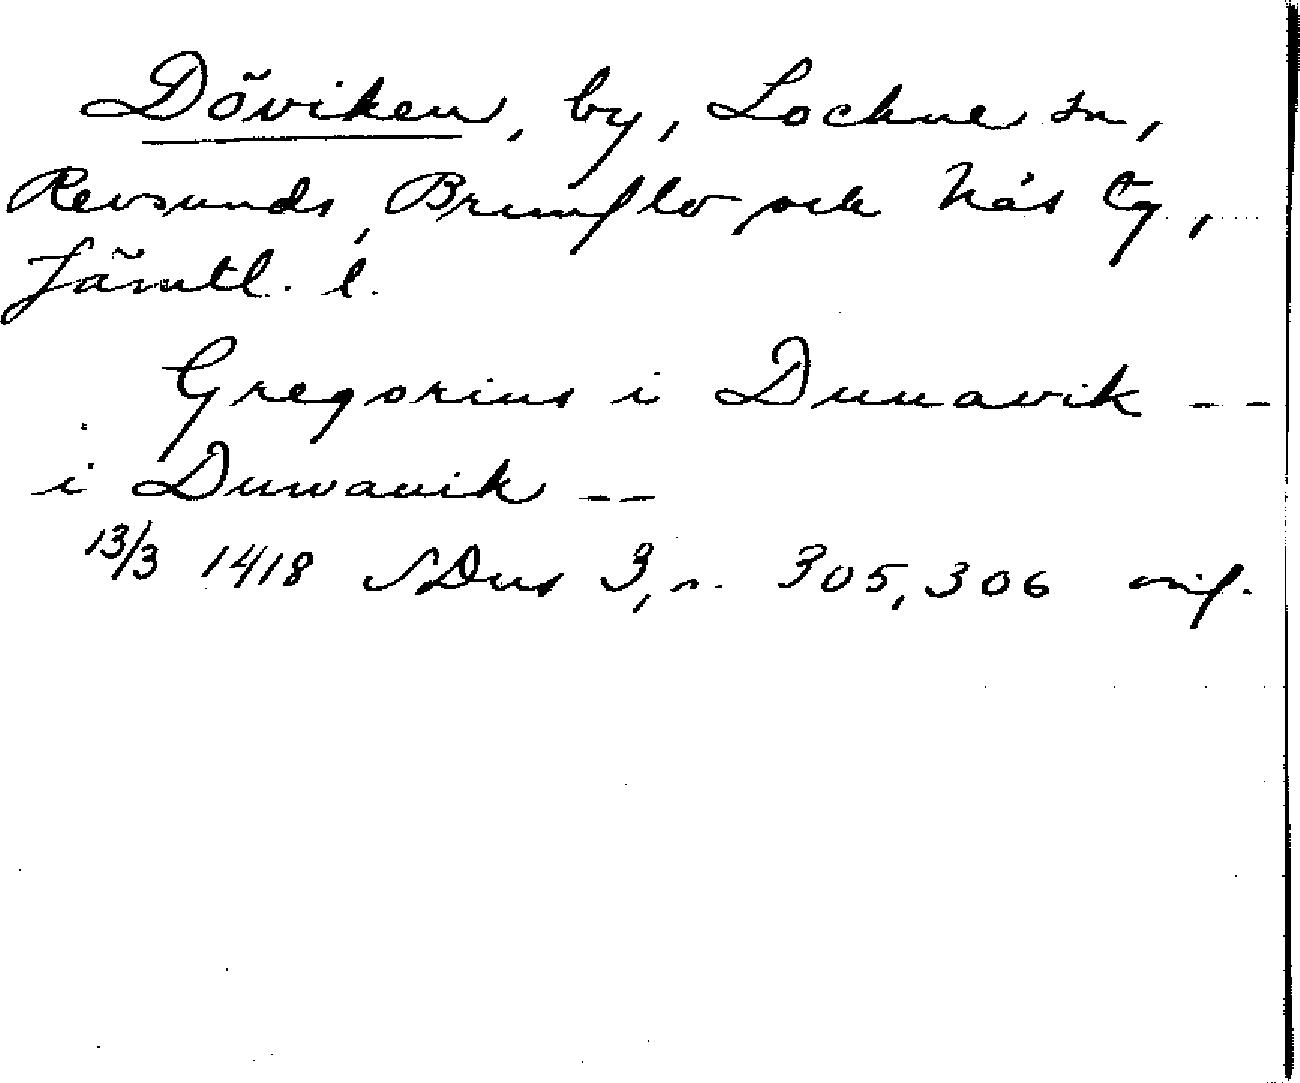 Döviken, by, Lockne sn,
Revsunds, Brunflo och Näs tg,
Jämtl. l.
Gregorius i Duuavik --
i Duwauik --
13/3 1418 SDns 3, nr. 305, 306 orig.